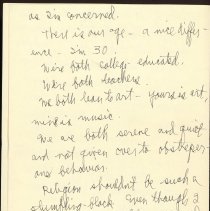 as I'm concerned.
There is our age - a nice differ-
ence - I'm 30.
We're both college educated.
We're both teachers.
We both lean to art - yours is art,
mine is music.
We are both serene and quiet
and not given over to obstreper-
ous behavior.
Religion shouldn't be such a
stumbling-block even though I